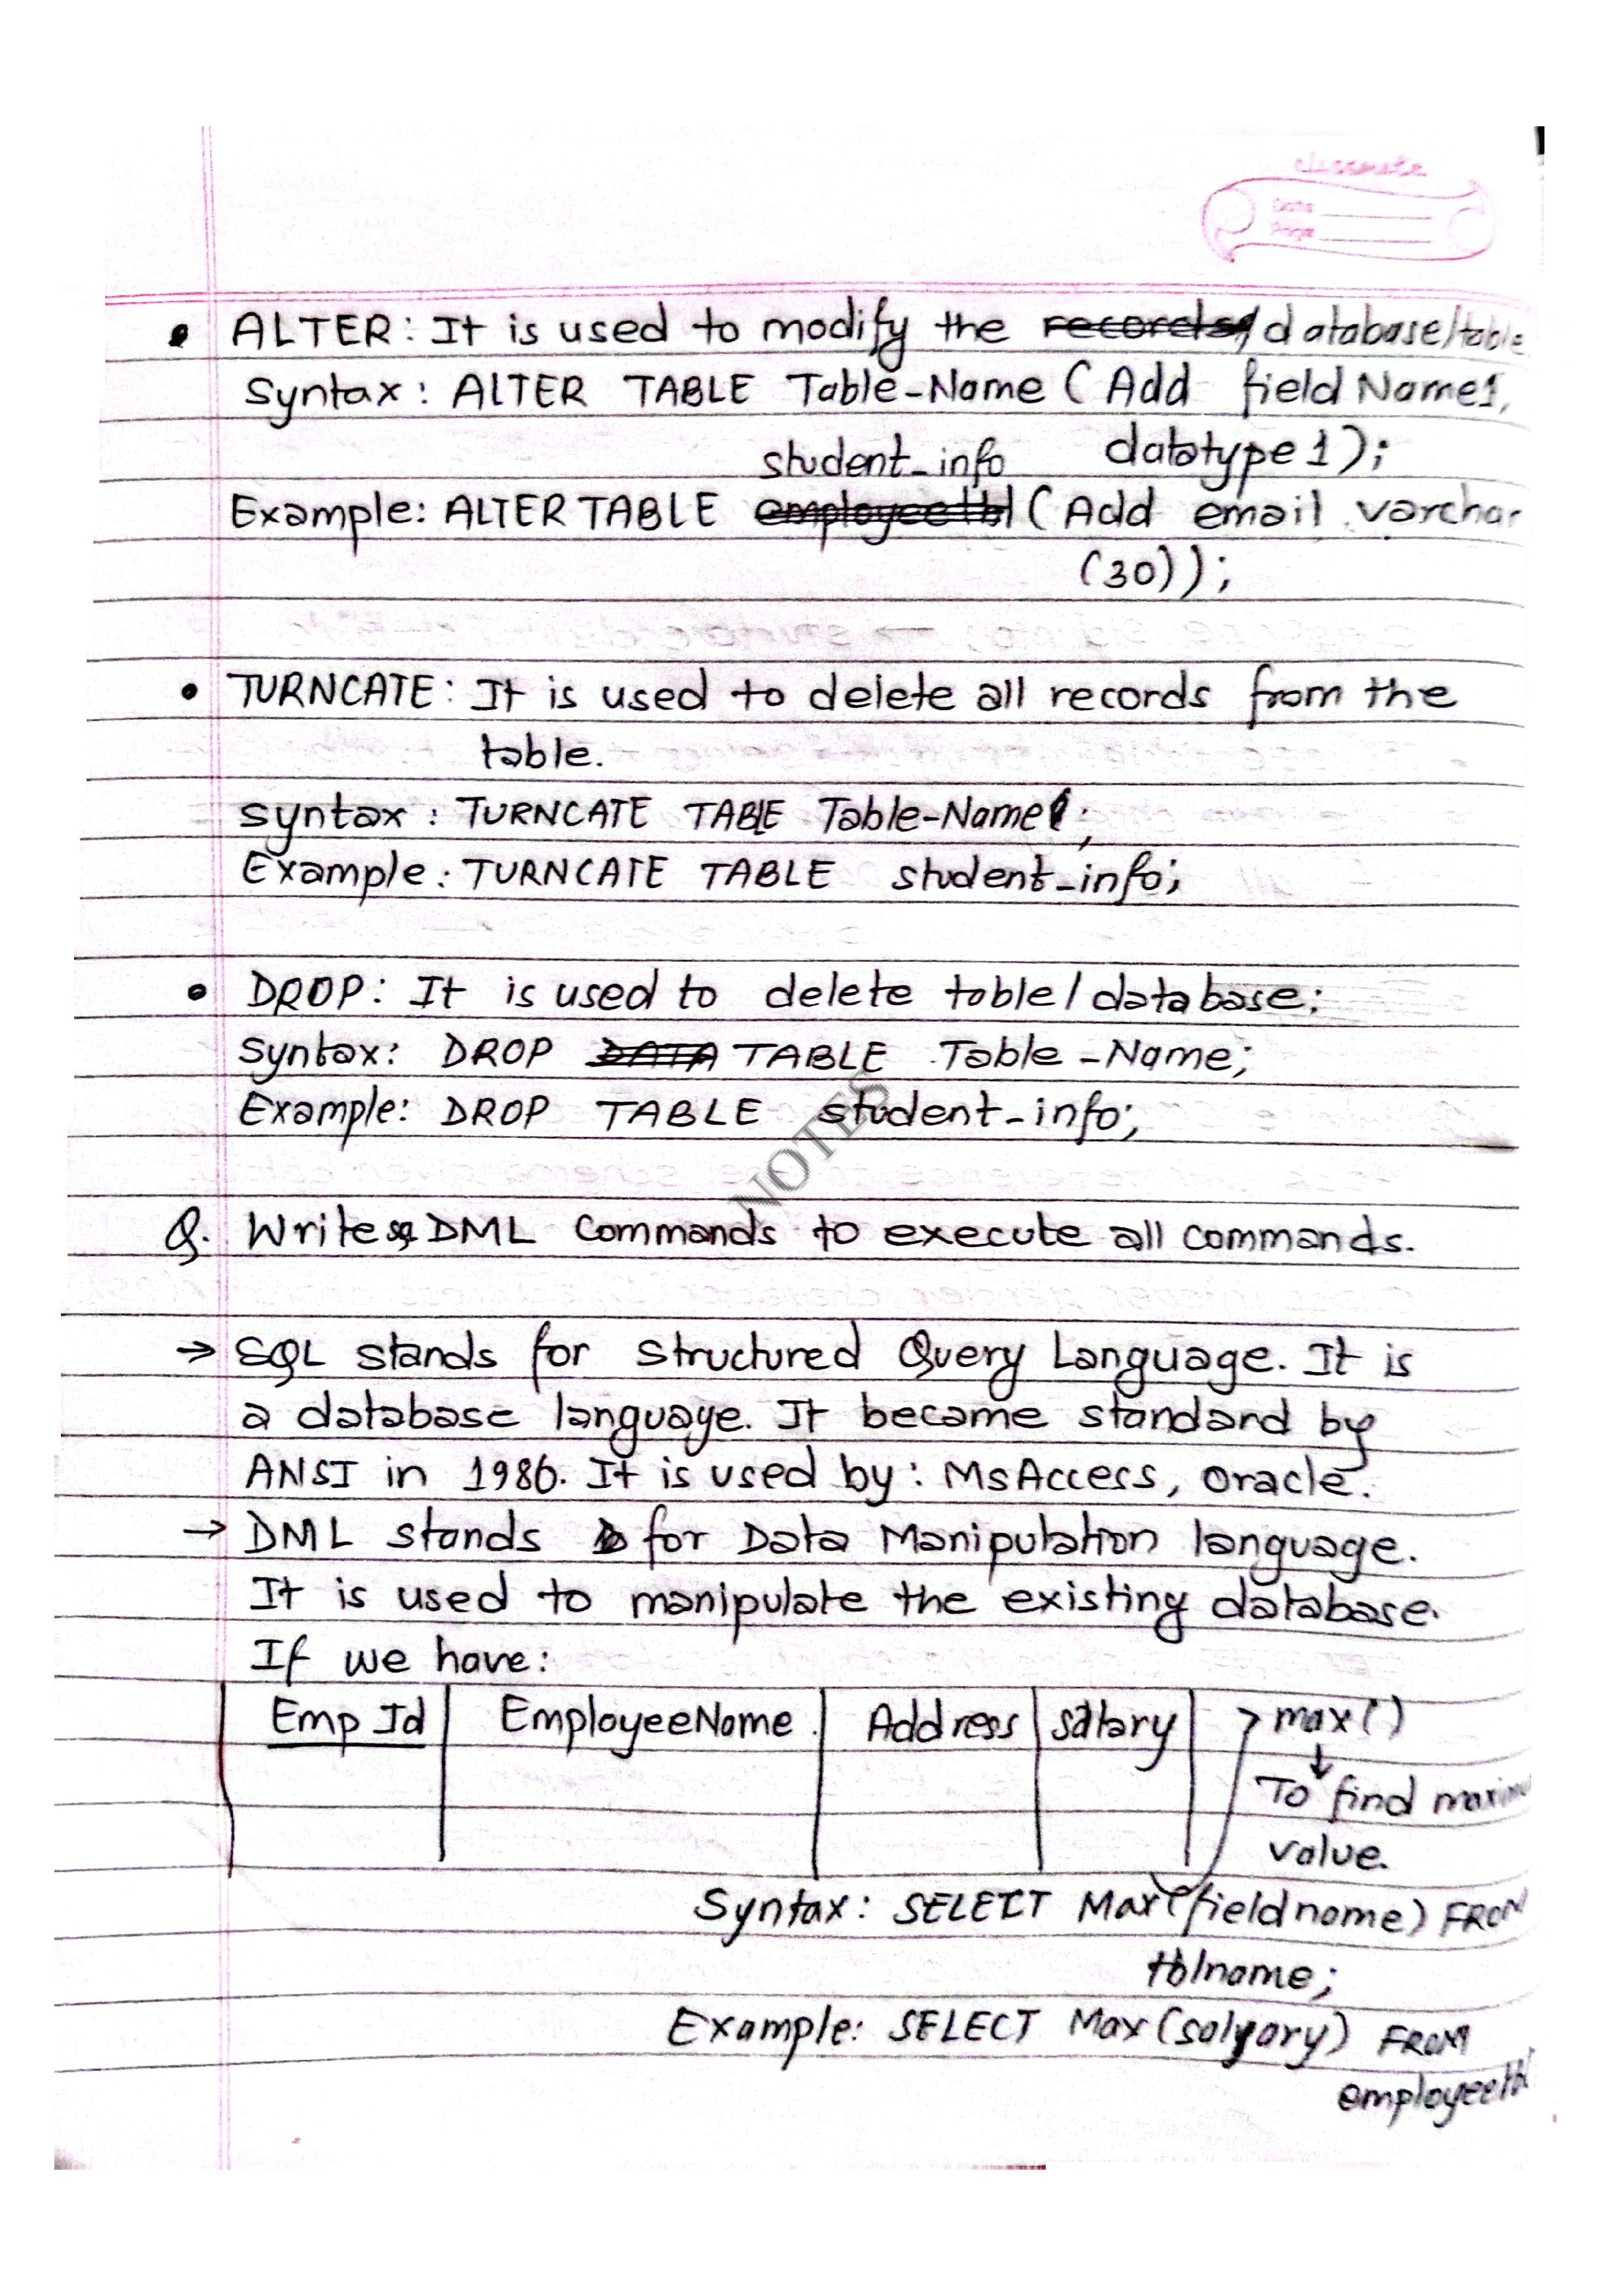 classmate
Date
Page
• ALTER: It is used to modify the database/table
Syntax: ALTER TABLE Table-Name (Add fieldName1,
datatype1);
student_info
Example: ALTER TABLE (Add email varchar
(30));
• TURNCATE: It is used to delete all records from the
table.
syntax: TURNCATE TABLE Table-Name;
Example: TURNCATE TABLE student_info;
• DROP: It is used to delete table/database:
Syntax: DROP TABLE Table-Name;
Example: DROP TABLE student_info;
NOTES
Q. Write DML Commands to execute all commands.
→ SQL stands for Structured Query Language. It is
a database language. It became standard by
ANSI in 1986. It is used by: MsAccess, Oracle.
→ DML stands for Data Manipulation language.
It is used to manipulate the existing database.
If we have:
Emp Id EmployeeName Address salary → max()
↓
To find maximu
value.
Syntax: SELECT Max(fieldname) FROM
tblname;
Example: SELECT Max(salary) FROM
employeetbl